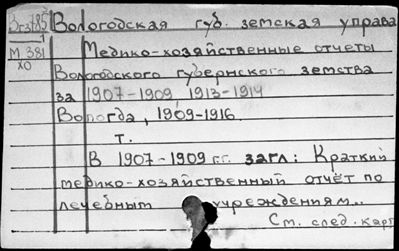 Вологодская губ. земская управа
М 381
ХО
Медико-хозяйственные отчеты
Вологодского губернского земства
за 1907-1909 1913-1914
Вологда, 1909-1916.
т.
В 1907-1909 гг. загл.: Краткий
медико-хозяйственный отчёт по
лечебным учреждениям...
См. след. карт